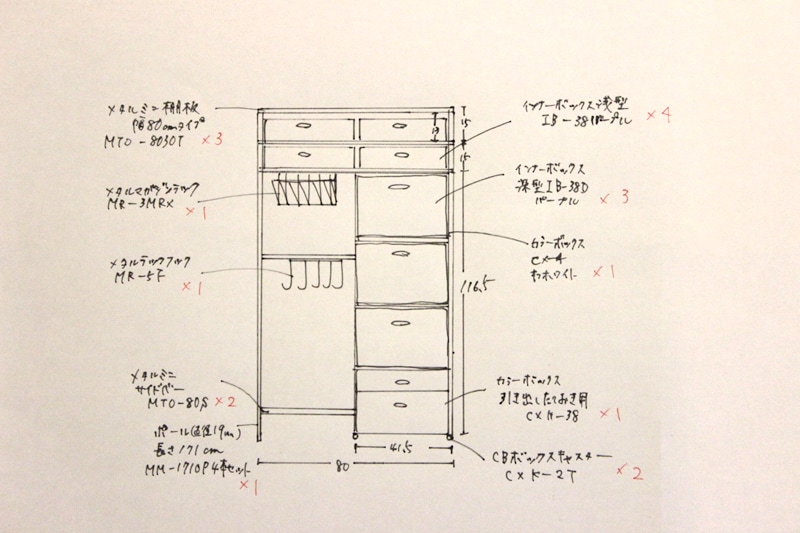 メタルミニ棚板
幅80cmタイプ
MTO-8030T ×3
メタルマガジンラック
MR-3MRX
×1
メタルラックフック
MR-5F
×1
メタルミニ
サイドバー
MTO-80S ×2
ポール(直径19mm)
長さ171cm
MM-1710P 4本セット
×1
インナーボックス浅型
IB-38 パープル ×4
インナーボックス
深型IB-38D
パープル ×3
カラーボックス
CX-4
オフホワイト ×1
カラーボックス
引き出したておき用
CXH-38 ×1
CBボックスキャスター
CXK-2T ×2
15
13
15
116.5
41.5
80